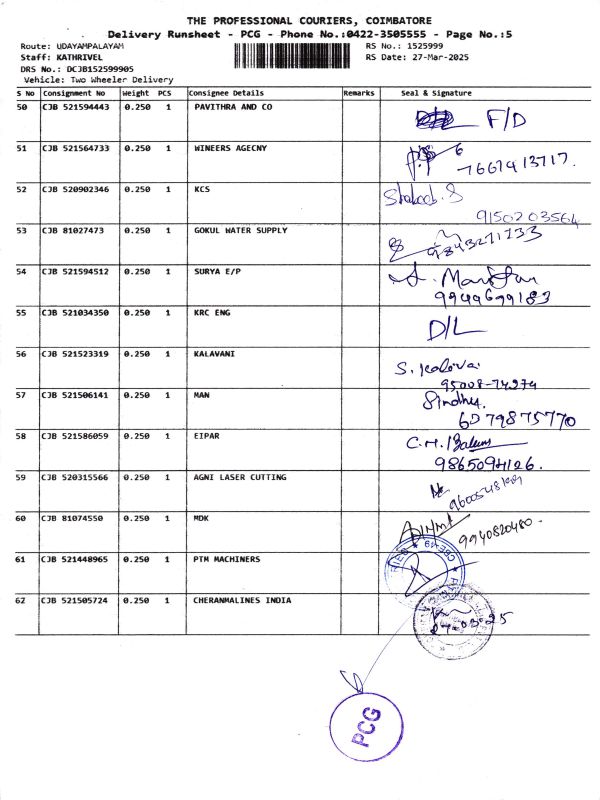 THE PROFESSIONAL COURIERS, COIMBATORE
Delivery Runsheet - PCG - Phone No.:0422-3505555 - Page No.:5
Route: UDAYAMPALAYAM RS No.: 1525999
Staff: KATHRIVEL RS Date: 27-Mar-2025
DRS No.: DCJB152599905
Vehicle: Two Wheeler Delivery
S No Consignment No Weight PCS Consignee Details Remarks Seal & Signature
50 CJB 521594443 0.250 1 PAVITHRA AND CO F/D
51 CJB 521564733 0.250 1 WINEERS AGECNY
7667413717.
52 CJB 520902346 0.250 1 KCS
9150203564
53 CJB 81027473 0.250 1 GOKUL WATER SUPPLY 9843271133
54 CJB 521594512 0.250 1 SURYA E/P
9949699183
55 CJB 521034350 0.250 1 KRC ENG D/L
56 CJB 521523319 0.250 1 KALAVANI S. Kalavai
95008-74274
57 CJB 521506141 0.250 1 MAN Sindhu.
6079875770
58 CJB 521586059 0.250 1 EIPAR C.M.
9865094126.
59 CJB 520315566 0.250 1 AGNI LASER CUTTING
60 CJB 81074550 0.250 1 MDK 9940820480.
61 CJB 521448965 0.250 1 PTM MACHINERS
62 CJB 521505724 0.250 1 CHERANMALINES INDIA
27-03-25
PCG